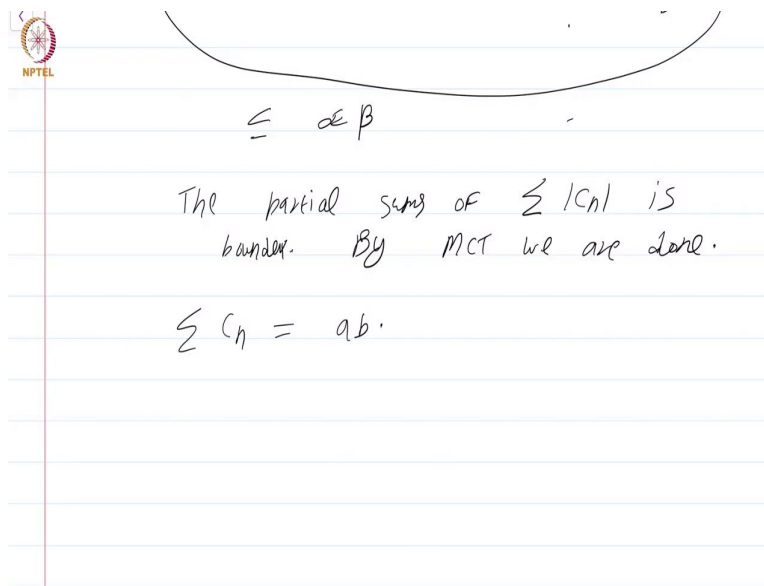 NPTEL
≤ αβ
The partial sums of Σ |Cn| is
bounded. By MCT we are done.
Σ Cn = ab.